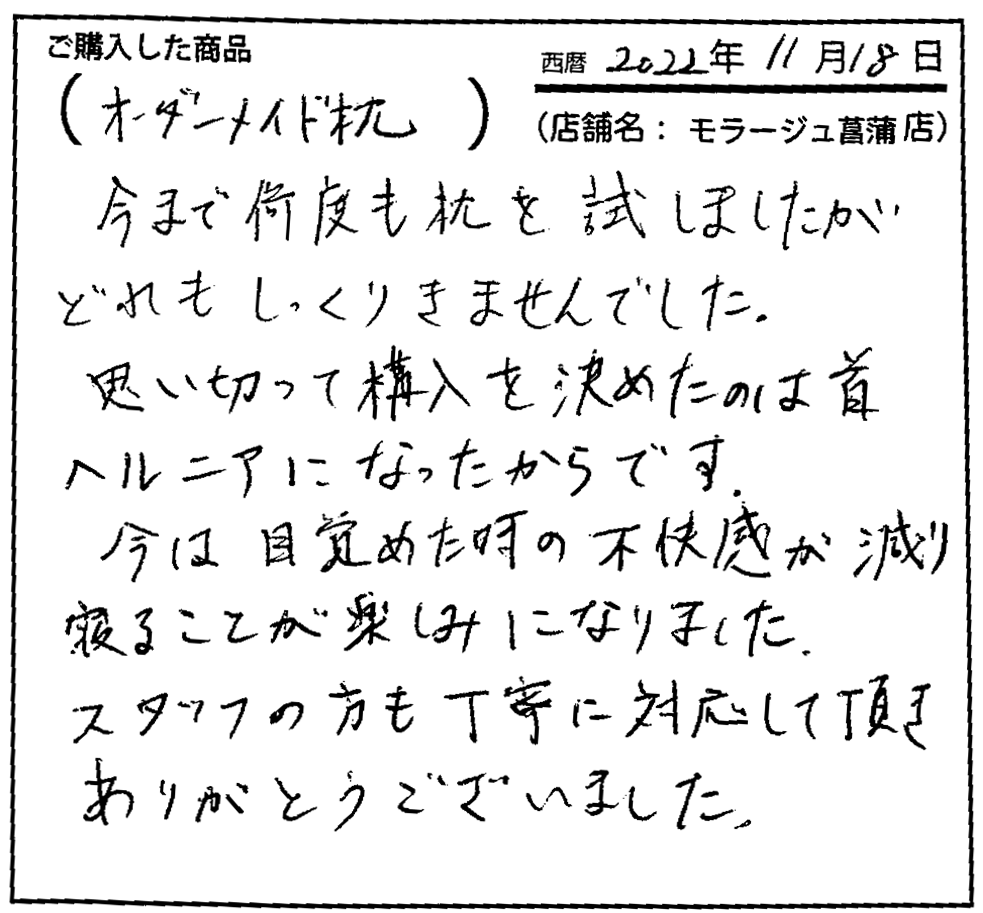 ご購入した商品
西暦 2022年 11月18日
(オーダーメイド枕)
(店舗名: モラージュ菖蒲店)
今まで何度も枕を試しましたが
どれもしっくりきませんでした。
思い切って構入を決めたのは首
ヘルニアになったからです。
今は目覚めた時の不快感が減り
寝ることが楽しみになりました。
スタッフの方も丁寧に対応して頂き
ありがとうございました。